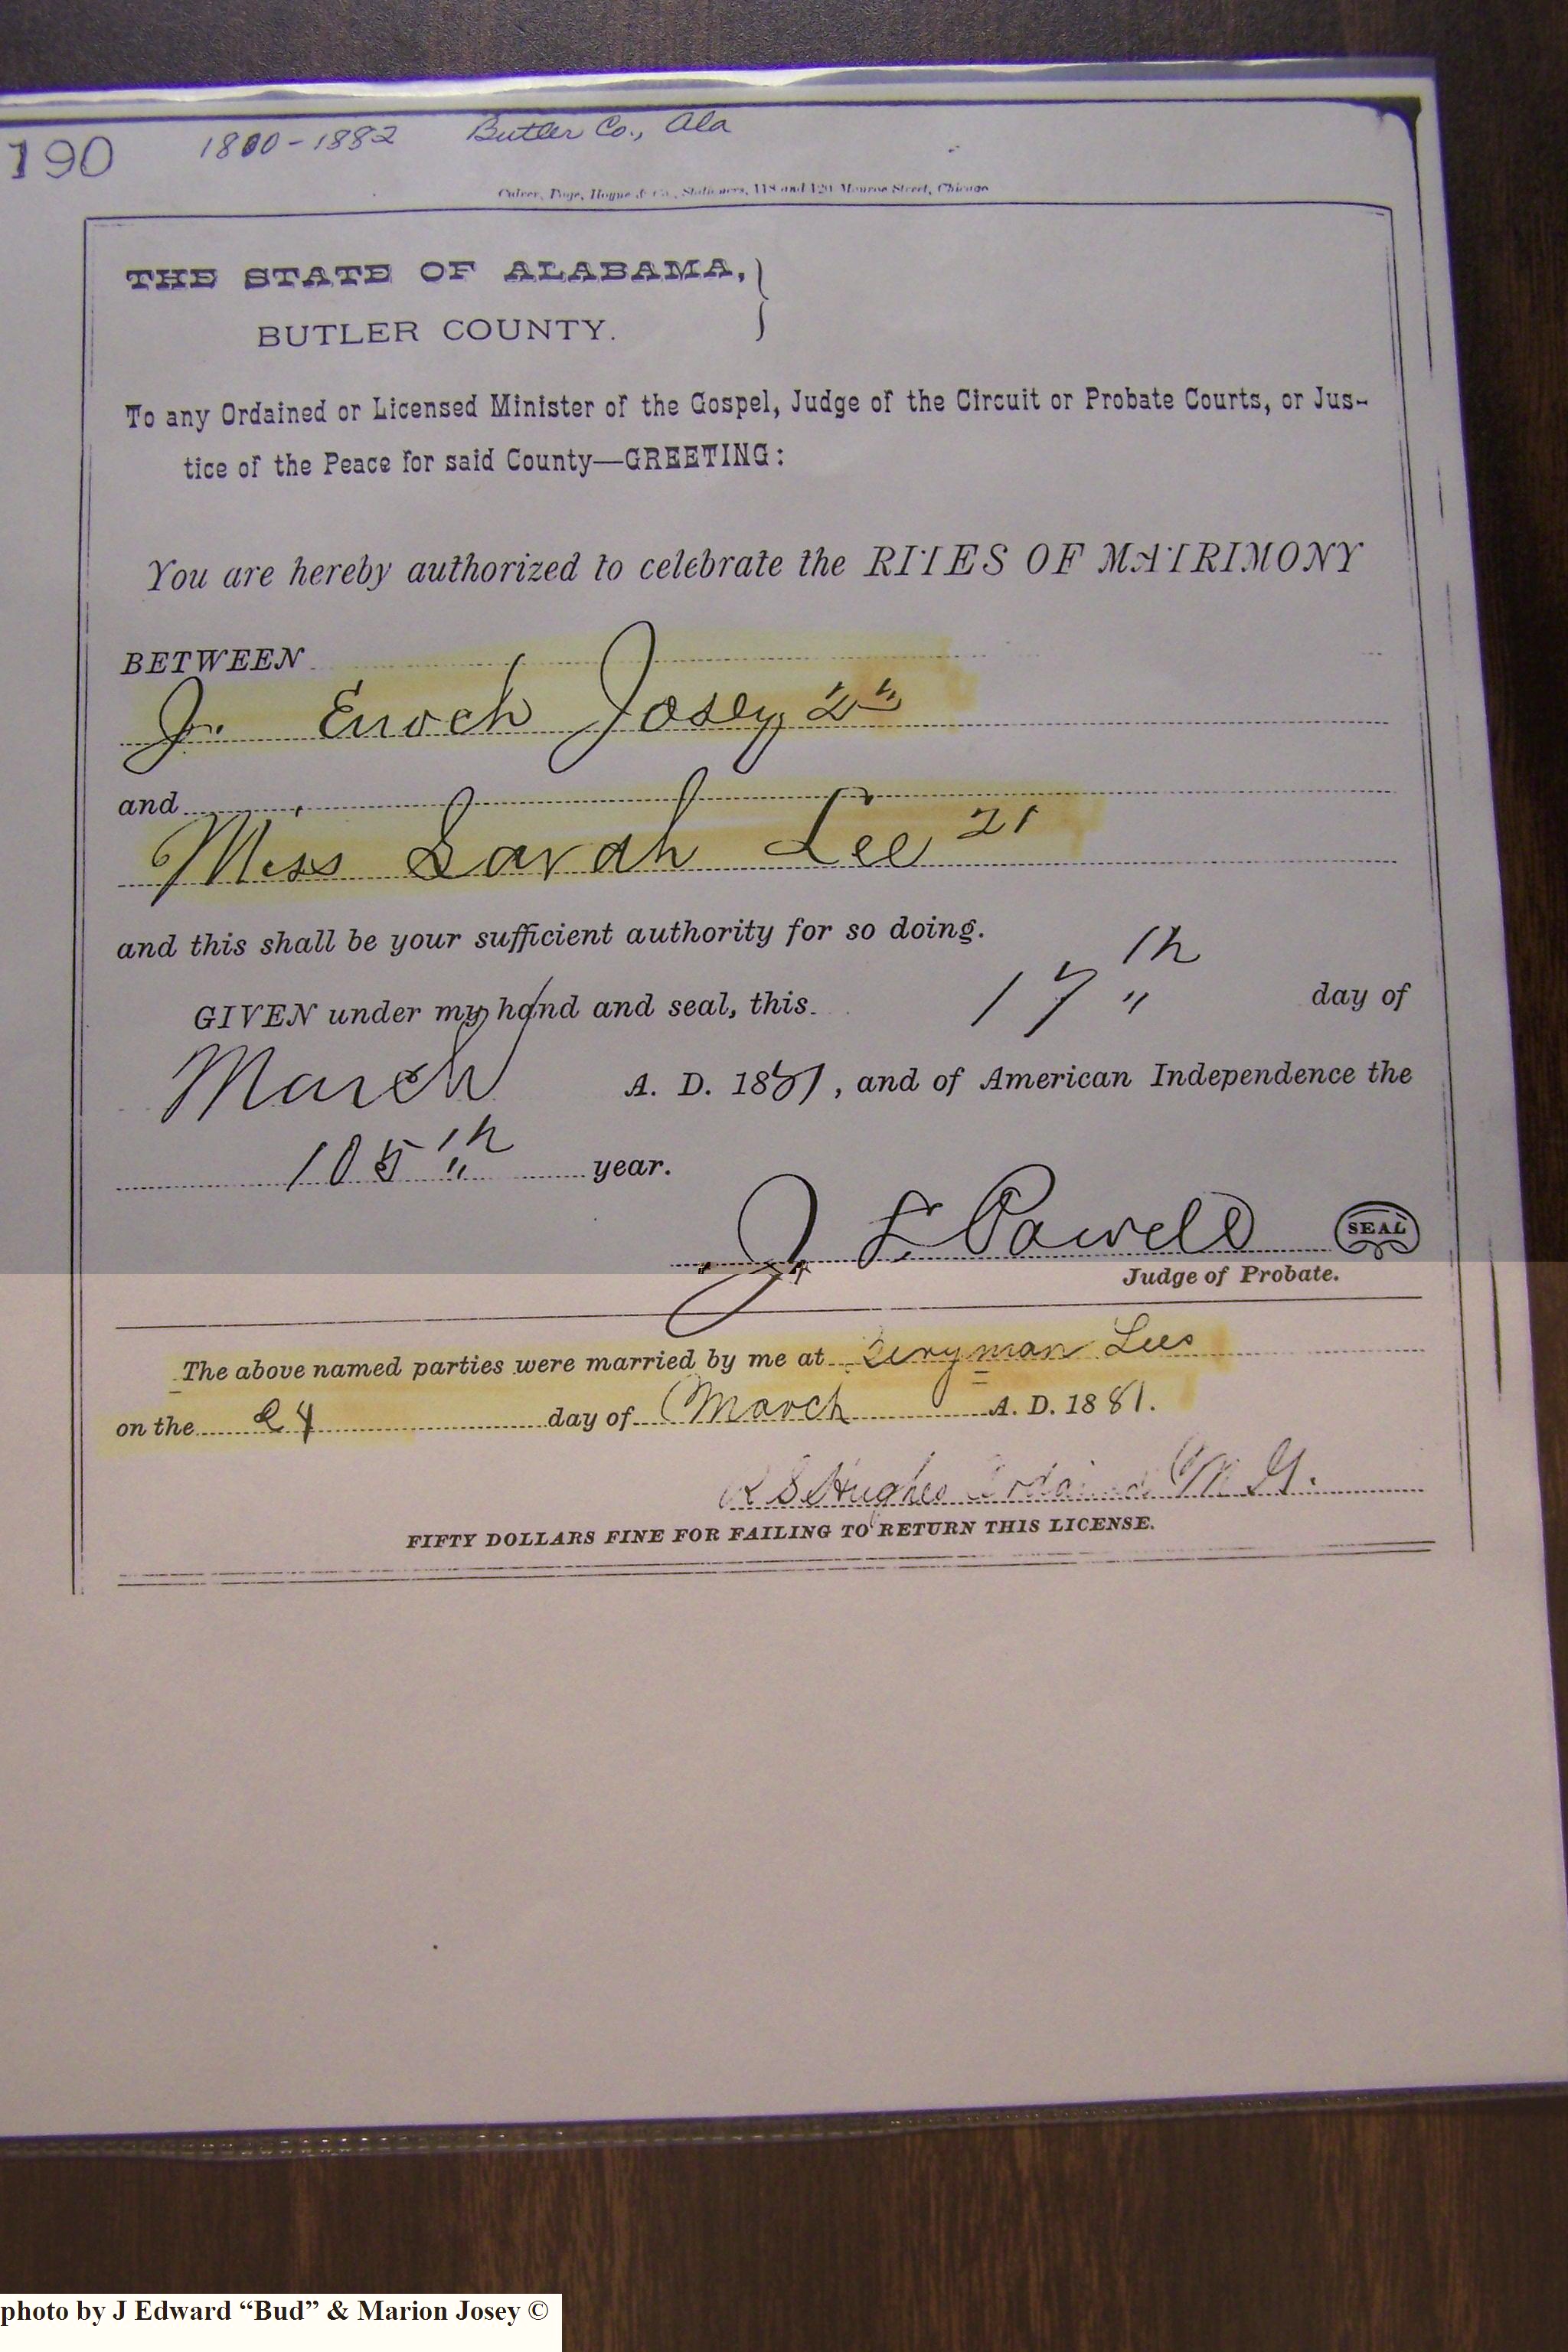 190 1880-1882 Butler Co., Ala
Culver, Page, Hoyne & Co., Stationers, 118 and 120 Monroe Street, Chicago
THE STATE OF ALABAMA,
BUTLER COUNTY.
To any Ordained or Licensed Minister of the Gospel, Judge of the Circuit or Probate Courts, or Jus-
tice of the Peace for said County—GREETING:
You are hereby authorized to celebrate the RITES OF MATRIMONY
BETWEEN
J. Enoch Josey
and
Miss Sarah Lee 21
and this shall be your sufficient authority for so doing.
GIVEN under my hand and seal, this 17th day of
March A. D. 1881, and of American Independence the
105th year.
J L Powell SEAL
Judge of Probate.
The above named parties were married by me at Beryman Lees
on the 24 day of March A. D. 1881.
R S Hughes Ordained M G.
FIFTY DOLLARS FINE FOR FAILING TO RETURN THIS LICENSE.
photo by J Edward “Bud” & Marion Josey ©